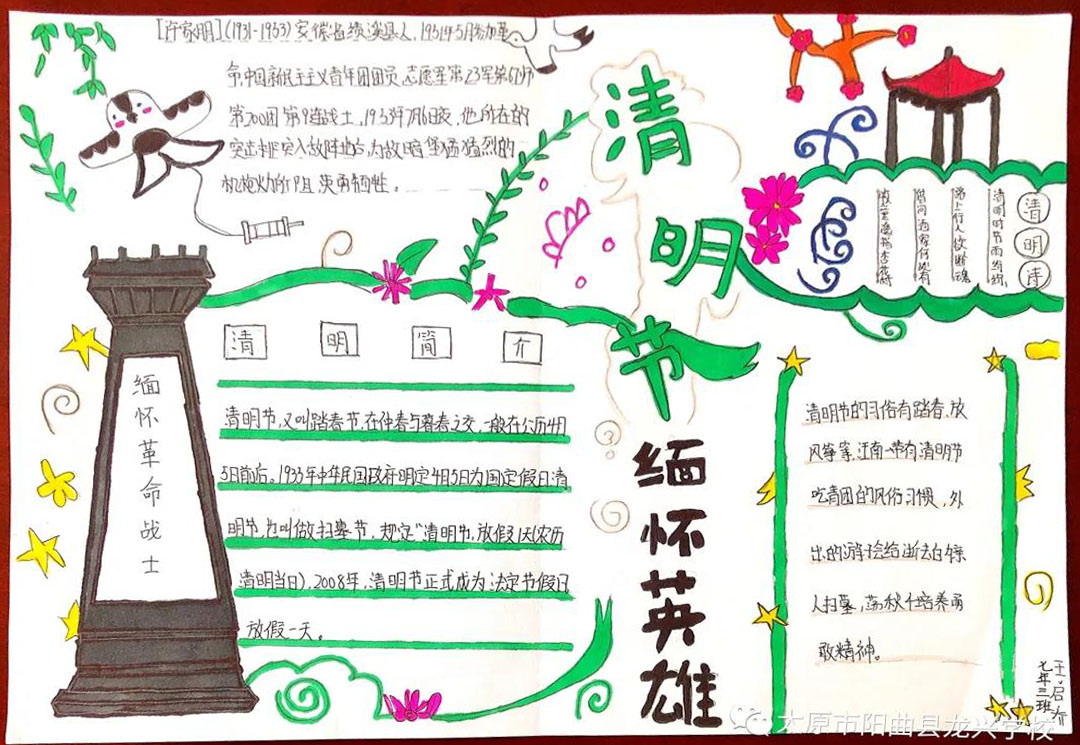 [许家朋](1931-1953)安徽省绩溪县人，1951年5月参加革
命,中国新民主主义青年团团员,志愿军第23军第67师
第200团第9连战士,1953年7月6日夜,他所在的
突击排突入敌阵地后,为敌暗堡猛烈的
机枪火力所阻,英勇牺牲。
清
明
节
缅
怀
英
雄
清明诗
清明时节雨纷纷
路上行人欲断魂
借问酒家何处有
牧童遥指杏花
清 明 简 介
清明节,又叫踏春节,在仲春与暮春之交,一般在公历4月
5日前后。1935年中华民国政府明定4月5日为国定假日清
明节,也叫做扫墓节,规定"清明节,放假1天(农历
清明当日),2008年,清明节正式成为法定节假日
放假一天。
缅怀革命战士
清明节的习俗有踏春,放
风筝等,江南一带有清明节
吃青团的风俗习惯,外
出的游子会给逝去的亲
人扫墓,荡秋千培养勇
敢精神。
七年三班
太原市阳曲县龙兴学校